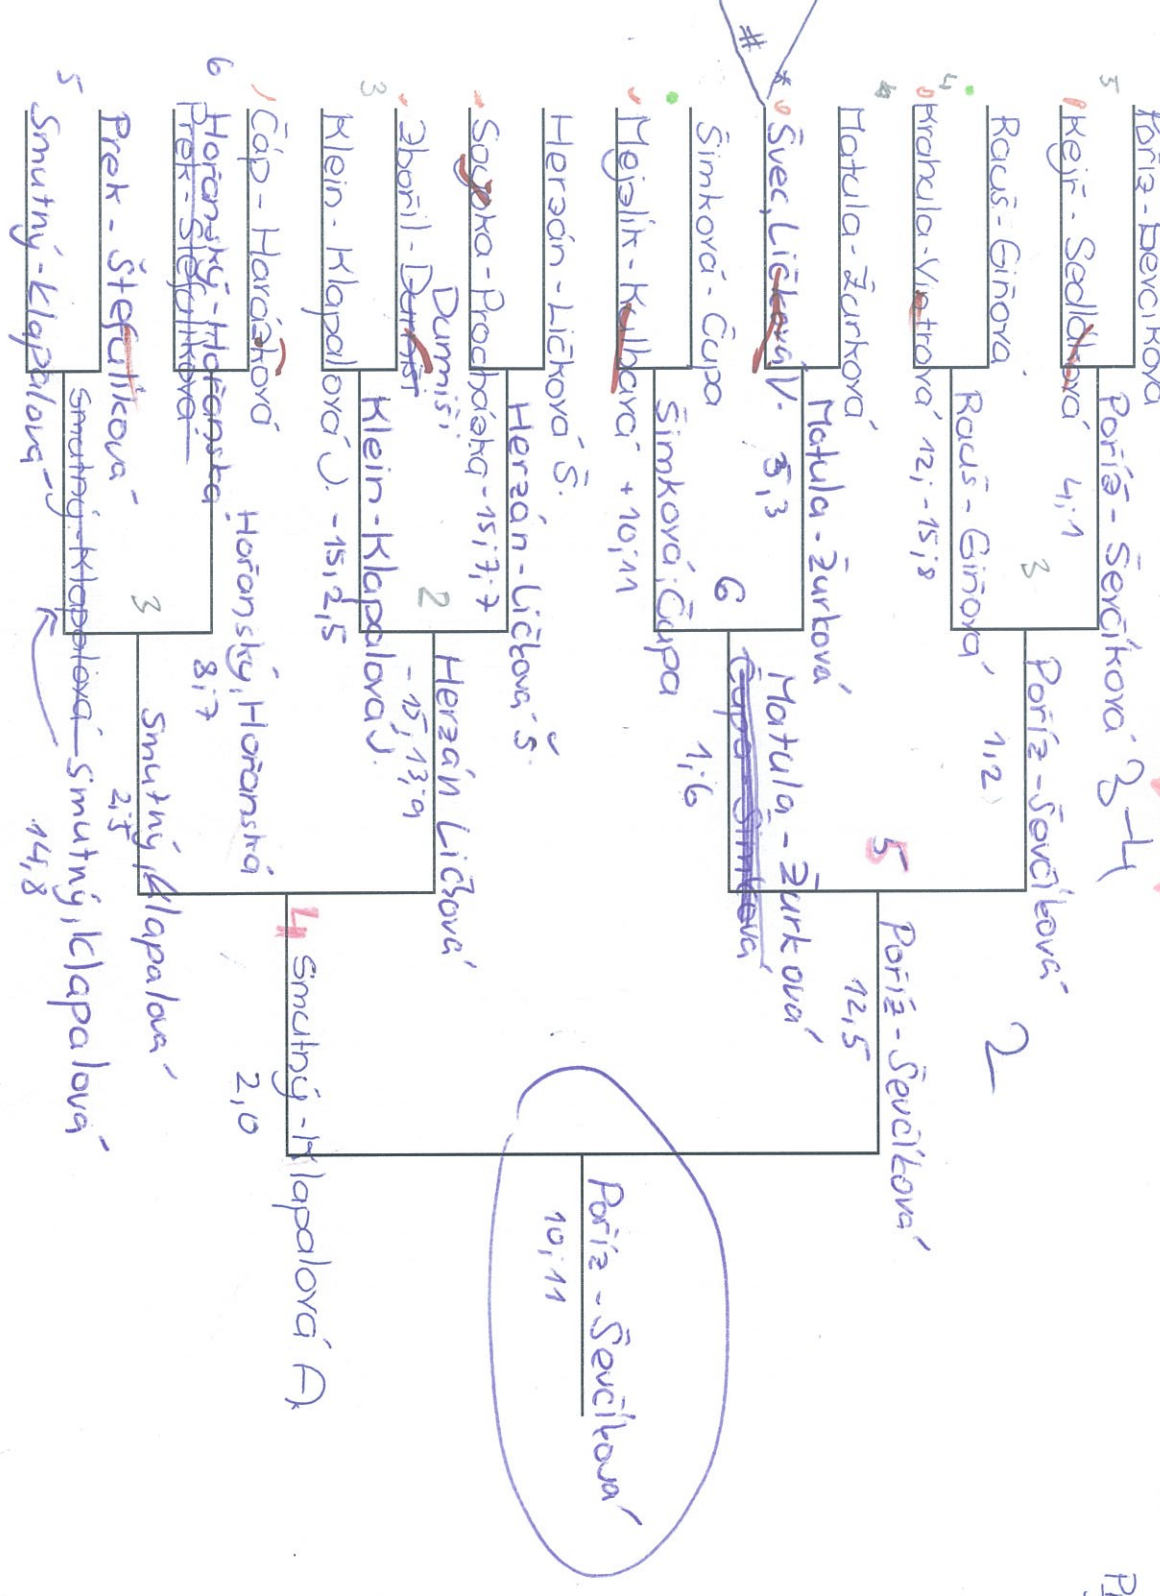 Poříz-Ševčíková
5
Kejř - Sedláková
Rauš-Giňová
4
Krahula-Vietrová
4
Matula-Žurková
#
*
Švec, Ličková V.
Šimková-Čupa
Mejzlík-Kulhavá
Herzán-Ličková Š.
Sojka-Procházka
Zbořil-Dumišt
Dumiši
3
Klein-Klapalová J.
Čáp-Harazková
6
Hořanský-Hořanská
Prek-Štefulíková
Prek-Štefulíková
5
Smutný-Klapalová
Poříz-Ševčíková
4,1
Rauš-Giňová
12,-15,8
3
Matula-Žurková
5,3
Šimková, Čupa
+10,11
6
Herzán-Ličková Š.
-15,7,7
Klein-Klapalová J.
-15,2,5
2
Hořanský, Hořanská
8,7
Smutný-Klapalová
Smutný, Klapalová
14,8
3
3-4
Poříz-Ševčíková
1,2
Matula-Žurková
Čupa-Šimková
1,6
5
Herzán Ličková
-15,13,9
Smutný, Klapalová
2,5
4
2
Poříz-Ševčíková
12,5
Smutný-Klapalová A.
2,0
Poříz-Ševčíková
10,11